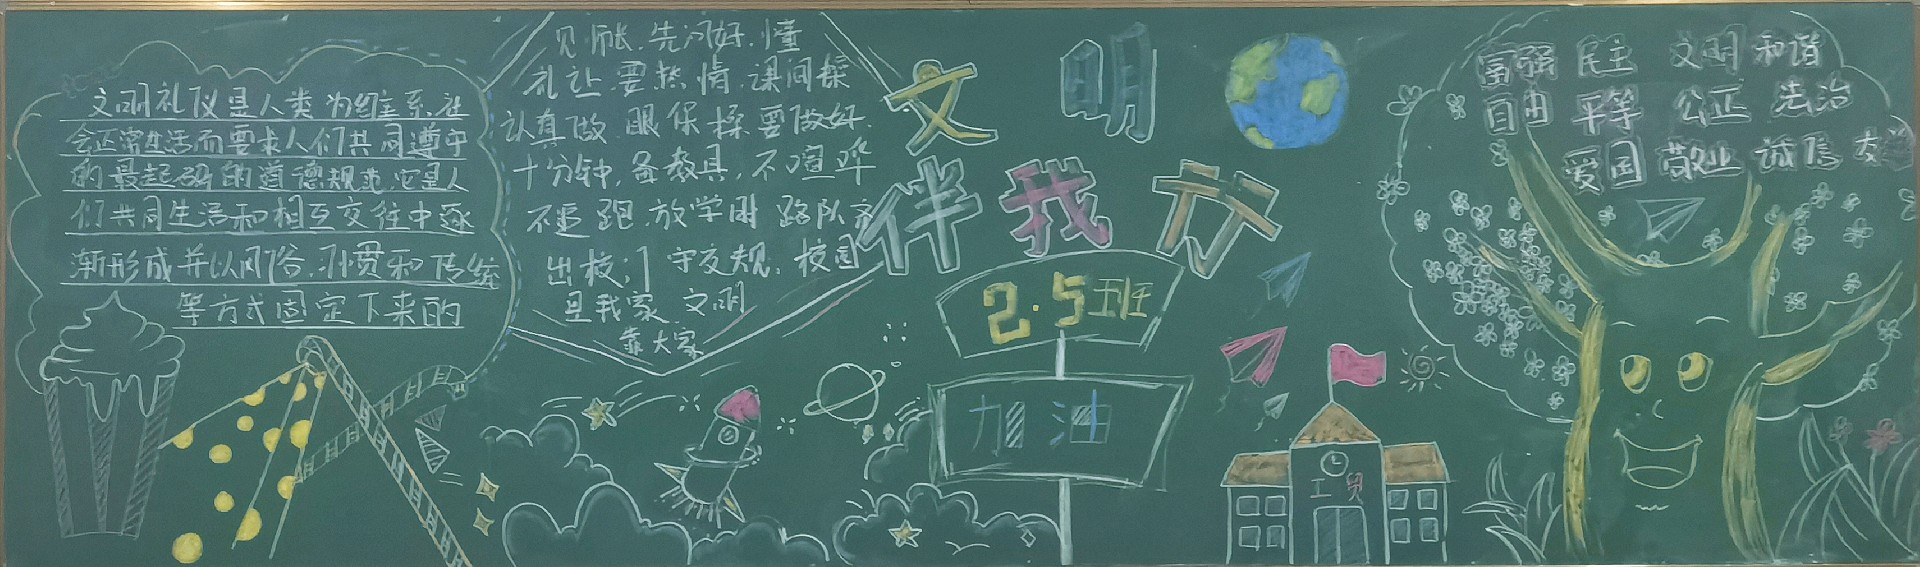 文明礼仪是人类为维系社
会正常生活而要求人们共同遵守
的最起码的道德规范,它是人
们共同生活和相互交往中逐
渐形成并以风俗、习惯和传统
等方式固定下来的
见师长,先问好,懂
礼让,要热情,课间操
认真做,眼保操要做好.
十分钟,备教具,不喧哗
不追跑,放学时 路队齐
出校门 守交规,校园
是我家 文明
靠大家
文明
伴我行
2·5班
加油
工贸
富强 民主 文明 和谐
自由 平等 公正 法治
爱国 敬业 诚信 友善